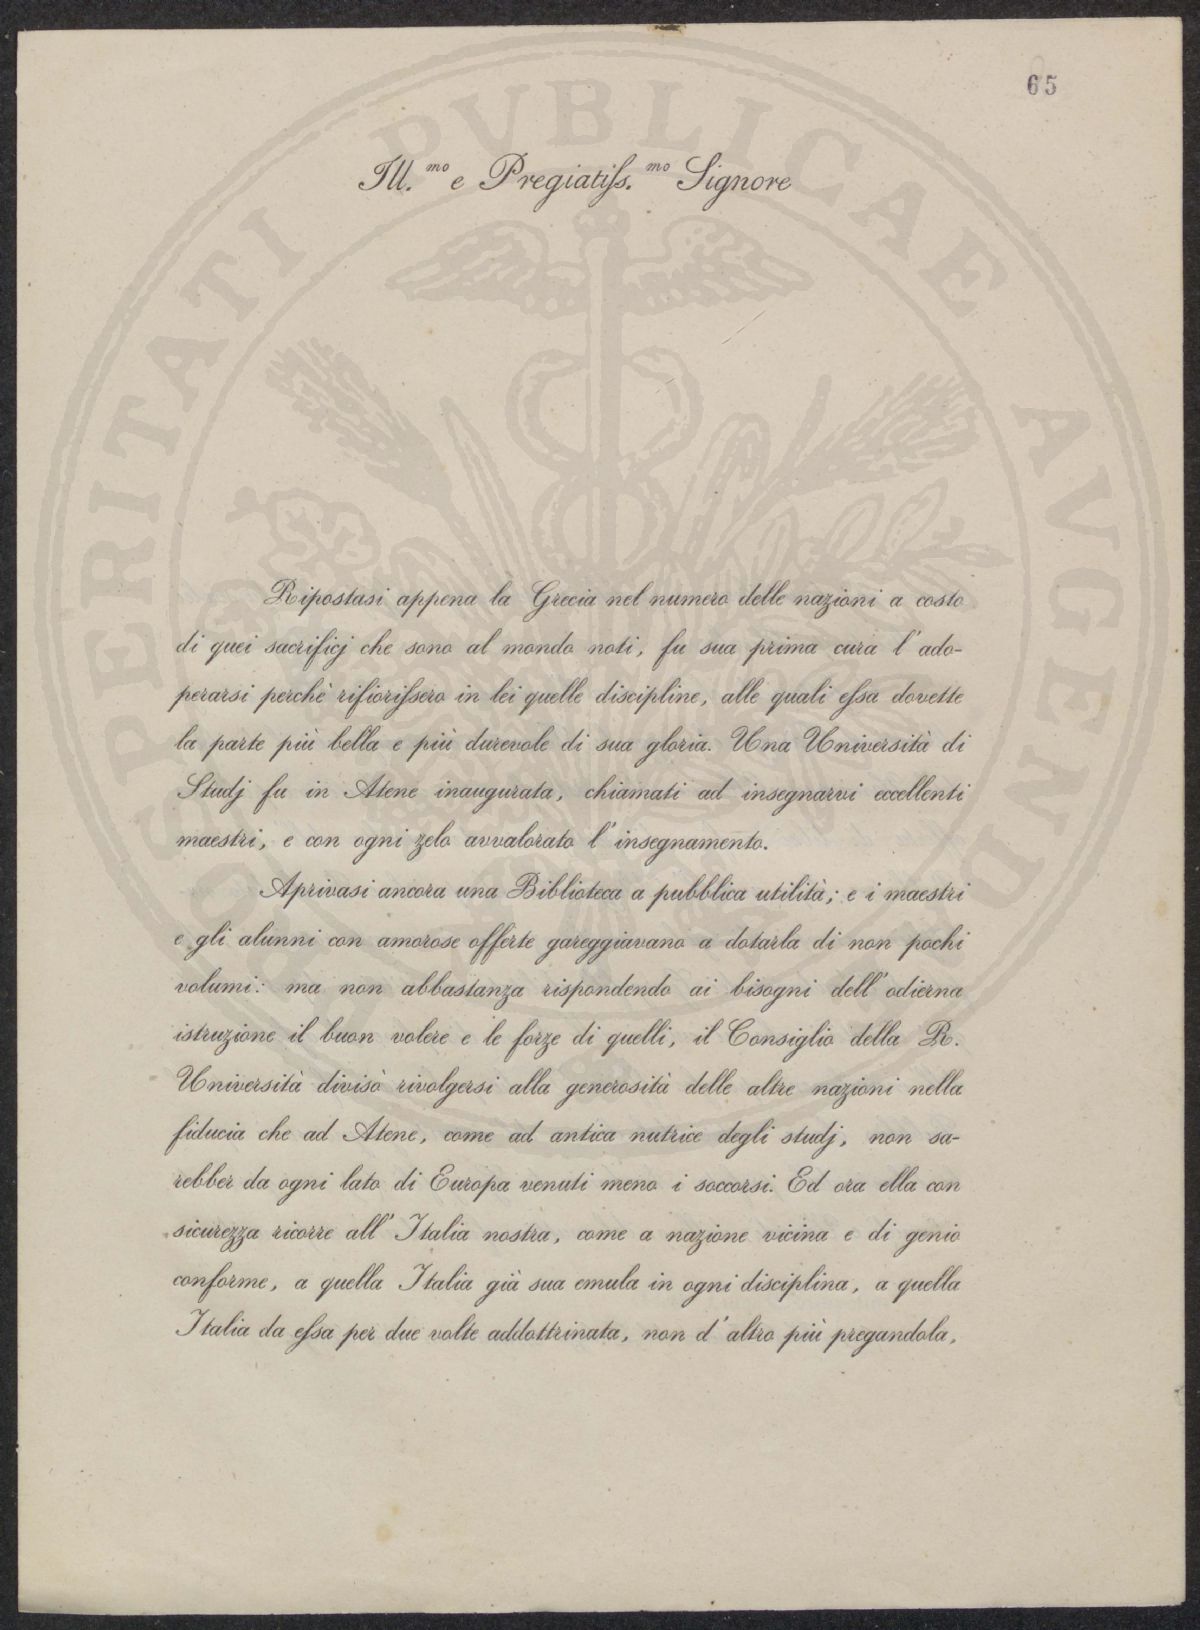 65
PROSPERITATI PVBLICAE AVGENDAE
Ill.mo e Pregiatiſs.mo Signore
Ripostasi appena la Grecia nel numero delle nazioni a costo
di quei sacrificj che sono al mondo noti, fu sua prima cura l'ado-
perarsi perchè rifioriſsero in lei quelle discipline, alle quali eſsa dovette
la parte più bella e più durevole di sua gloria. Una Università di
Studj fu in Atene inaugurata, chiamati ad insegnarvi eccellenti
maestri, e con ogni zelo avvalorato l'insegnamento.
Aprivasi ancora una Biblioteca a pubblica utilità; e i maestri
e gli alunni con amorose offerte gareggiavano a dotarla di non pochi
volumi: ma non abbastanza rispondendo ai bisogni dell'odierna
istruzione il buon volere e le forze di quelli, il Consiglio della R.
Università divisò rivolgersi alla generosità delle altre nazioni nella
fiducia che ad Atene, come ad antica nutrice degli studj, non sa-
rebber da ogni lato di Europa venuti meno i soccorsi. Ed ora ella con
sicurezza ricorre all'Italia nostra, come a nazione vicina e di genio
conforme, a quella Italia già sua emula in ogni disciplina, a quella
Italia da eſsa per due volte addottrinata, non d'altro più pregandola,